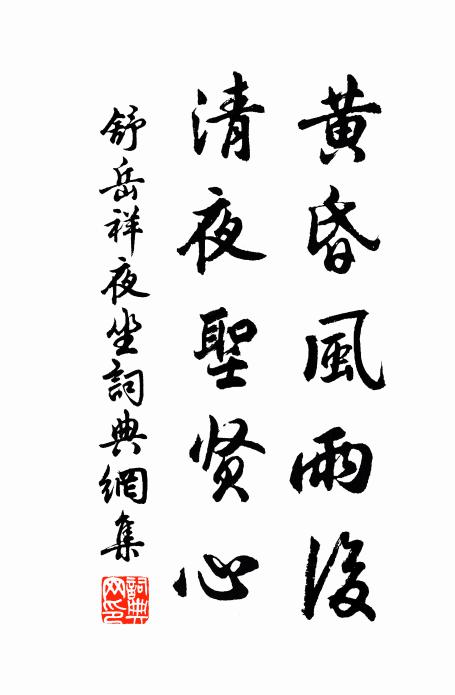 黄昏風雨後
清夜聖贤心
舒岳祥夜坐詞典網集
詞典網印